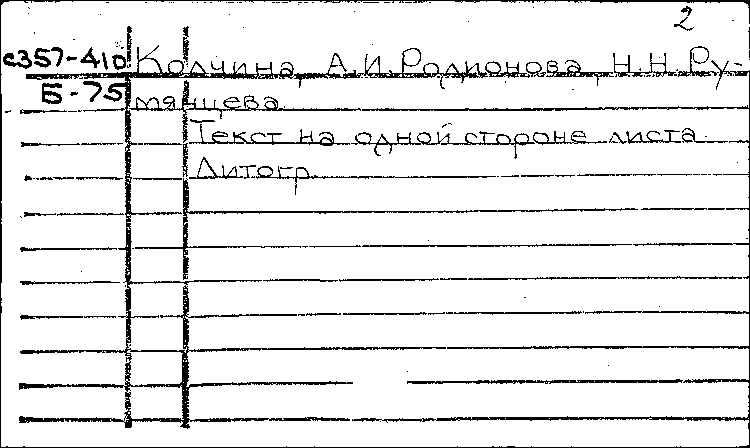 2
с357-410 Колчина, А.И.Родионова, Н.Н.Ру-
Б-75 мянцева.
Текст на одной стороне листа.
Литогр.